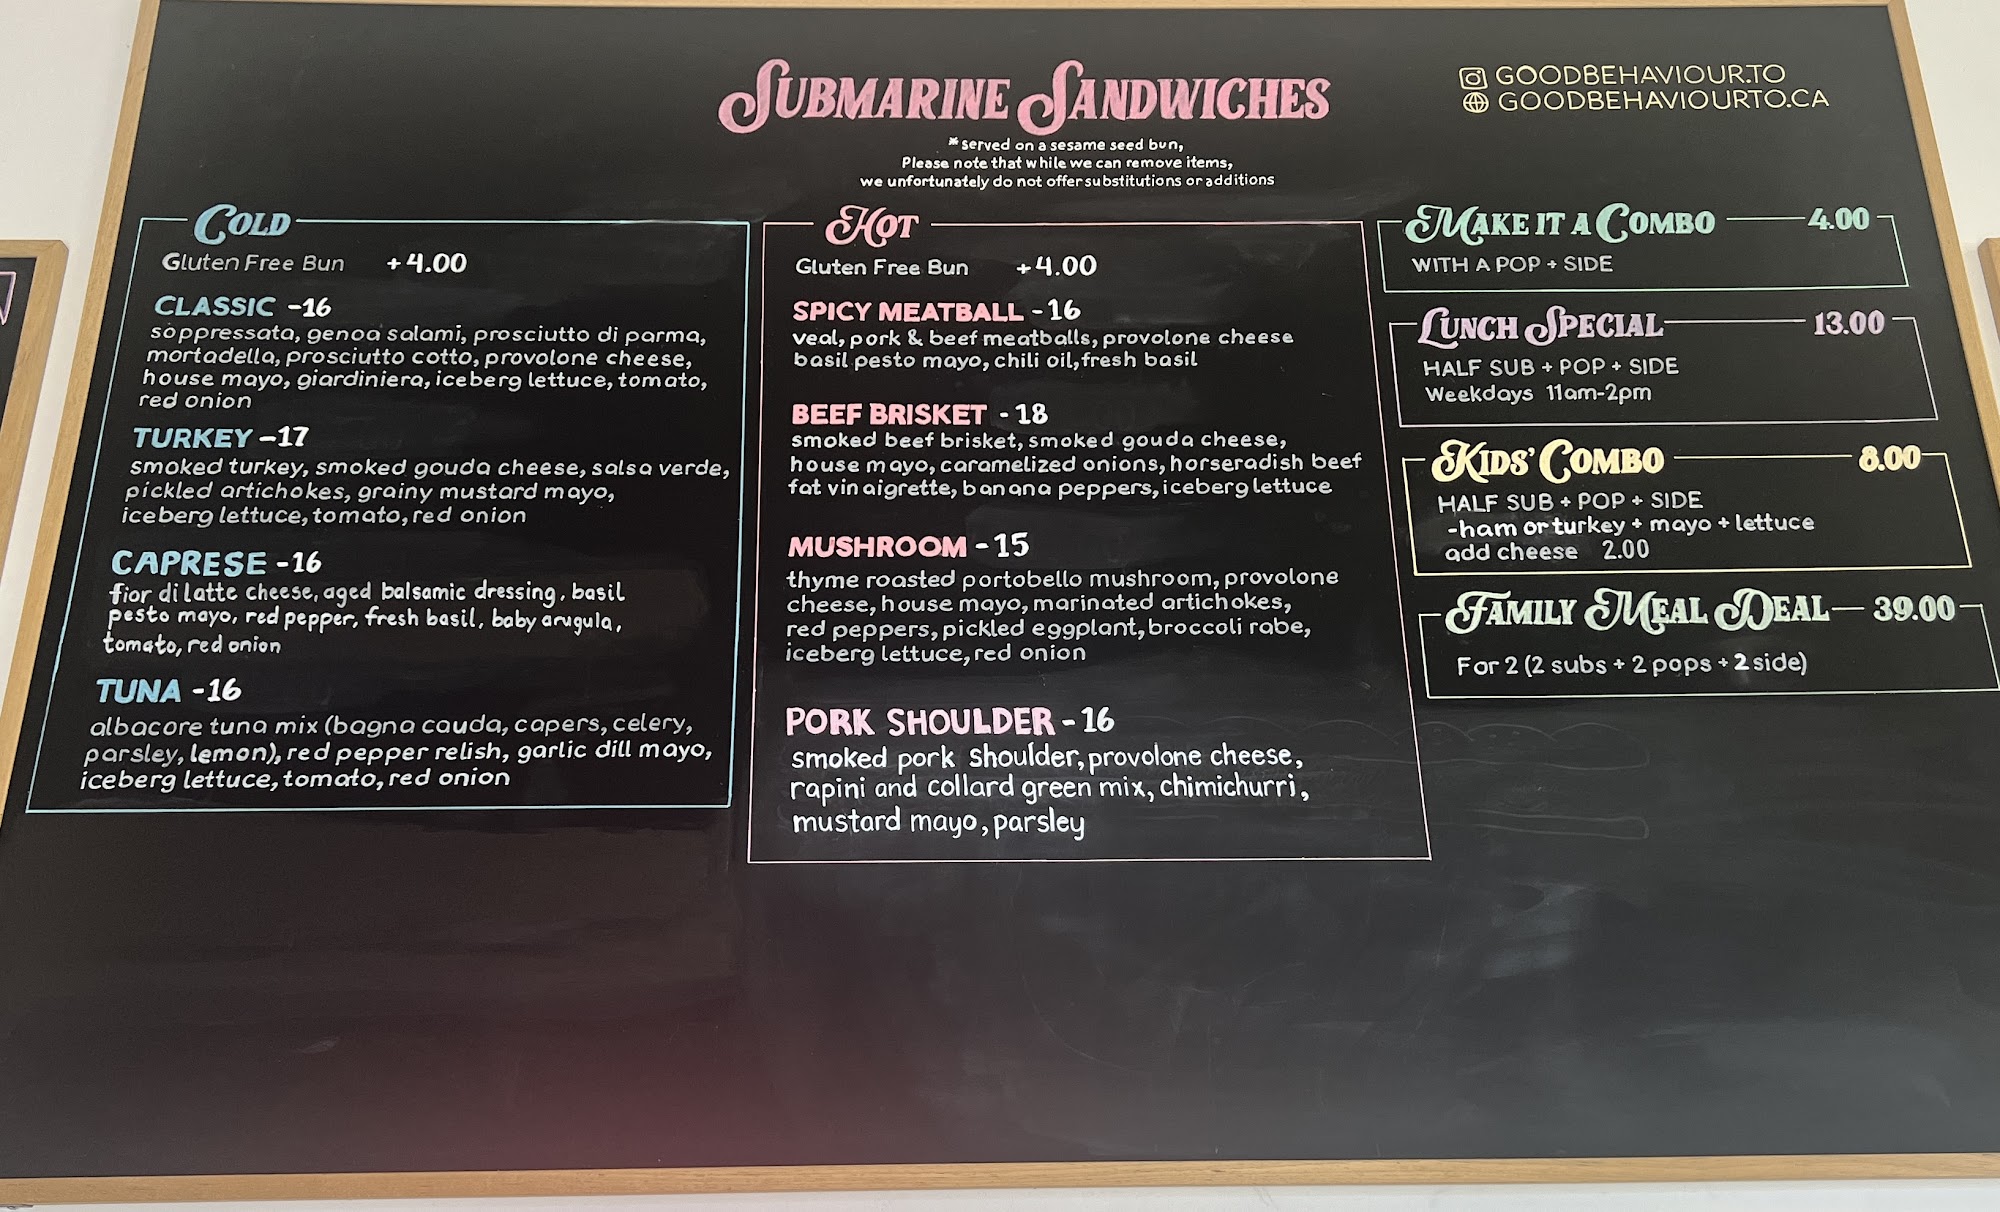 SUBMARINE SANDWICHES
*served on a sesame seed bun,
Please note that while we can remove items,
we unfortunately do not offer substitutions or additions
GOODBEHAVIOUR.TO
GOODBEHAVIOURTO.CA
COLD
Gluten Free Bun +4.00
CLASSIC -16
soppressata, genoa salami, prosciutto di parma,
mortadella, prosciutto cotto, provolone cheese,
house mayo, giardiniera, iceberg lettuce, tomato,
red onion
TURKEY -17
smoked turkey, smoked gouda cheese, salsa verde,
pickled artichokes, grainy mustard mayo,
iceberg lettuce, tomato, red onion
CAPRESE -16
fior di latte cheese, aged balsamic dressing, basil
pesto mayo, red pepper, fresh basil, baby arugula,
tomato, red onion
TUNA -16
albacore tuna mix (bagna cauda, capers, celery,
parsley, lemon), red pepper relish, garlic dill mayo,
iceberg lettuce, tomato, red onion
HOT
Gluten Free Bun +4.00
SPICY MEATBALL -16
veal, pork & beef meatballs, provolone cheese
basil pesto mayo, chili oil, fresh basil
BEEF BRISKET -18
smoked beef brisket, smoked gouda cheese,
house mayo, caramelized onions, horseradish beef
fat vinaigrette, banana peppers, iceberg lettuce
MUSHROOM -15
thyme roasted portobello mushroom, provolone
cheese, house mayo, marinated artichokes,
red peppers, pickled eggplant, broccoli rabe,
iceberg lettuce, red onion
PORK SHOULDER -16
smoked pork shoulder, provolone cheese,
rapini and collard green mix, chimichurri,
mustard mayo, parsley
MAKE IT A COMBO 4.00
WITH A POP + SIDE
LUNCH SPECIAL 13.00
HALF SUB + POP + SIDE
Weekdays 11am-2pm
KIDS' COMBO 8.00
HALF SUB + POP + SIDE
-ham or turkey + mayo + lettuce
add cheese 2.00
FAMILY MEAL DEAL 39.00
For 2 (2 subs + 2 pops + 2 side)